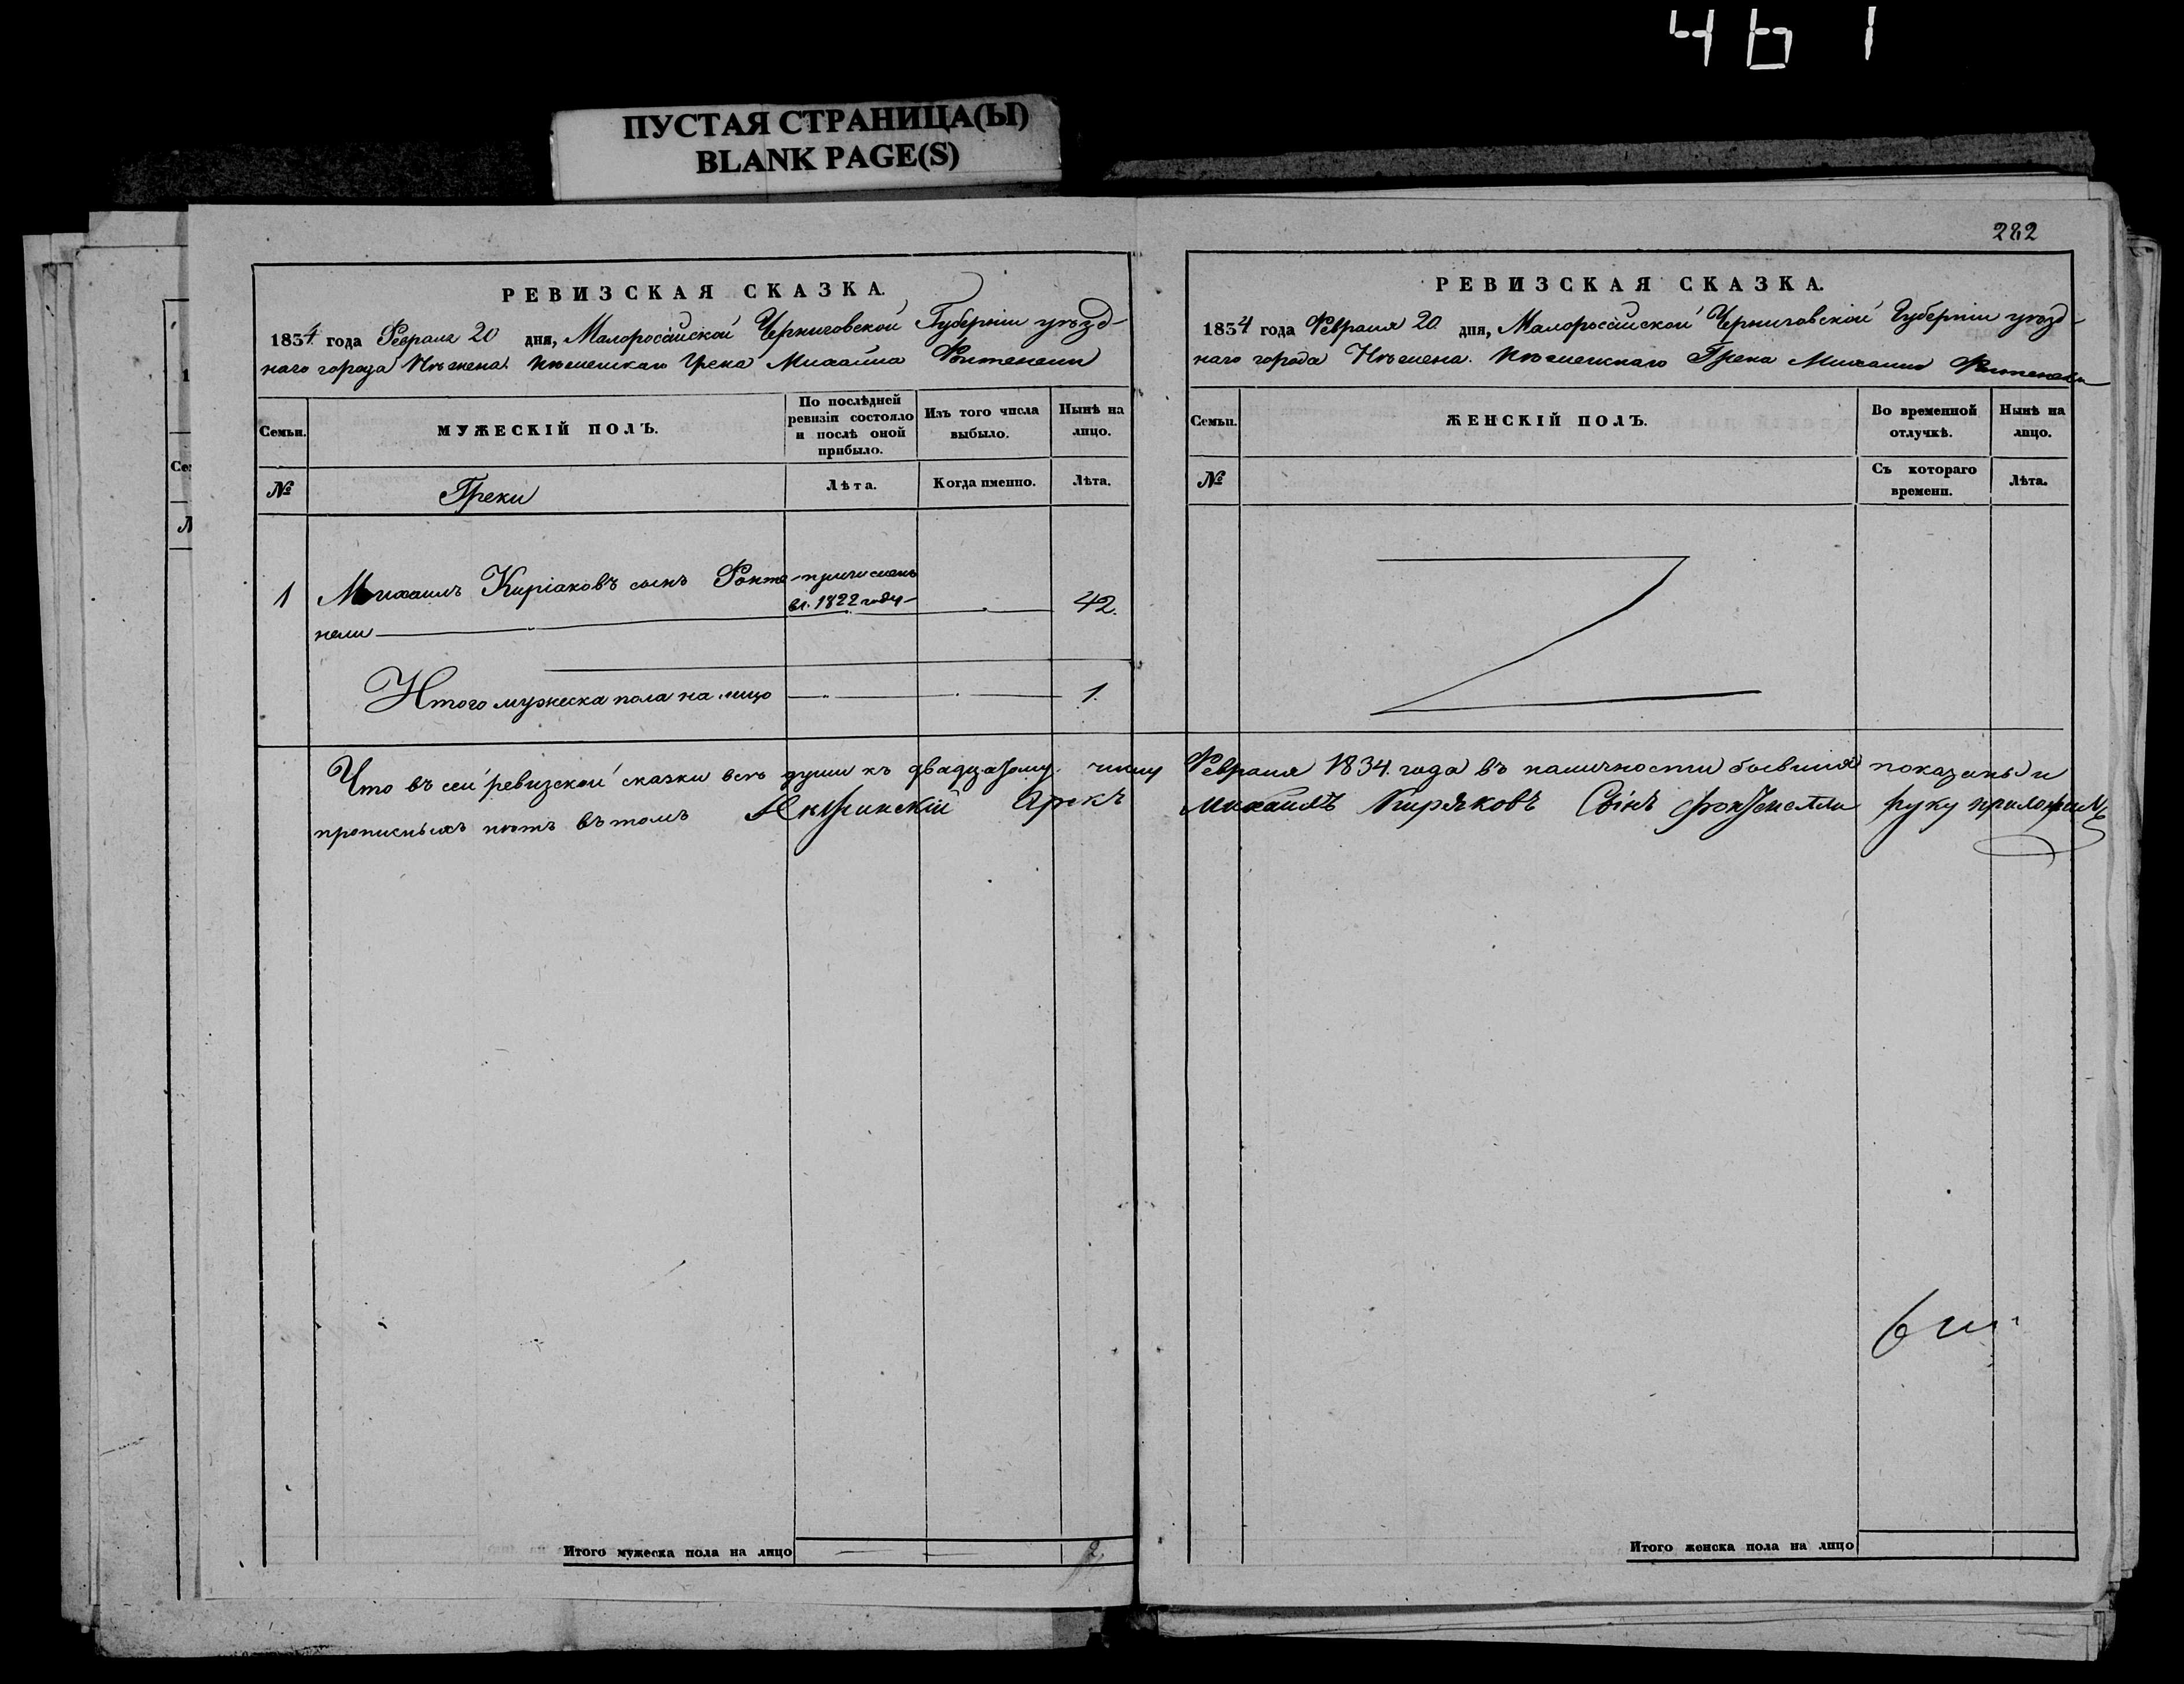 461
ПУСТАЯ СТРАНИЦА(Ы)
BLANK PAGE(S)
РЕВИЗСКАЯ СКАЗКА.
1834 года Февраля 20 дня, Малоросійской Черниговской Губерніи уѣзд-
наго города Нѣжена. Нѣженскаго Грека Михаила Фонтенели
Семьи.
МУЖЕСКІЙ ПОЛЪ.
По послѣдней ревизіи состояло и послѣ оной прибыло.
Изъ того числа выбыло.
Нынѣ на лицо.
№
Греки
Лѣта.
Когда именно.
Лѣта.
1 Михаилъ Киріаковъ сынъ Фонте- причисленъ
нели в. 1822 году 42.
Итого мужеска пола на лицо 1.
282
РЕВИЗСКАЯ СКАЗКА.
1834 года Февраля 20 дня, Малоросійской Черниговской Губерніи уѣзд-
наго города Нѣжена. Нѣженскаго Грека Михаила Фонтенели
Семьи.
ЖЕНСКІЙ ПОЛЪ.
Во временной отлучкѣ.
Нынѣ на лицо.
№
Съ котораго времени.
Лѣта.
Что въ сей ревизской сказки всѣ души къ двадцатому числу Февраля 1834. года въ наличности бывшія показаны и
прописныхъ нѣтъ въ томъ Грекъ Михаилъ Киряковъ Сынъ Фонтенелли руку приложилъ
Итого мужеска пола на лицо
Итого женска пола на лицо